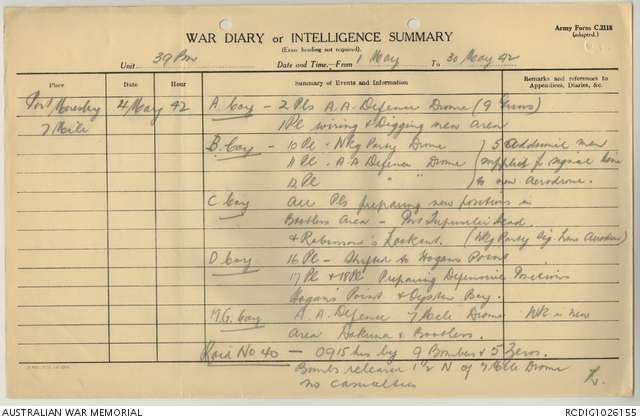 Army Form C.2118
(adapted.)
WAR DIARY or INTELLIGENCE SUMMARY
(Erase heading not required).
Unit 39 Bn Date and Time.—From 1 May To 30 May 42
Place Date Hour Summary of Events and Information Remarks and references to Appendices, Diaries, &c.
Port Moresby 4 May 42 A. Coy - 2 Pls A.A. Defence Drome (9 Guns)
7 Mile 1 Pl wiring & Digging new area
B. Coy - 10 Pl - Wkg Party Drome } 5 additional men
11 Pl - A.A Defence Drome } supplied for signal line
12 Pl " " } to new Aerodrome.
C Coy All Pls preparing new positions in
Bootless Area -
& Robinson's Lookout. (Wkg Party Sig. Lines Aerodrome)
D Coy 16 Pl - Shifted to Hogans Point
17 Pl & 18 Pl Preparing Defensive Positions
Hogan's Point & Oyster Bay.
M.G. Coy A.A. Defence 7 Mile Drome WK in new
Area & Bootless.
Raid No 40 - 0915 hrs by 9 Bombers & 5 Zeros.
Bombs released 1½ N of 7 Mile Drome
no casualties
AUSTRALIAN WAR MEMORIAL RCDIG1026155